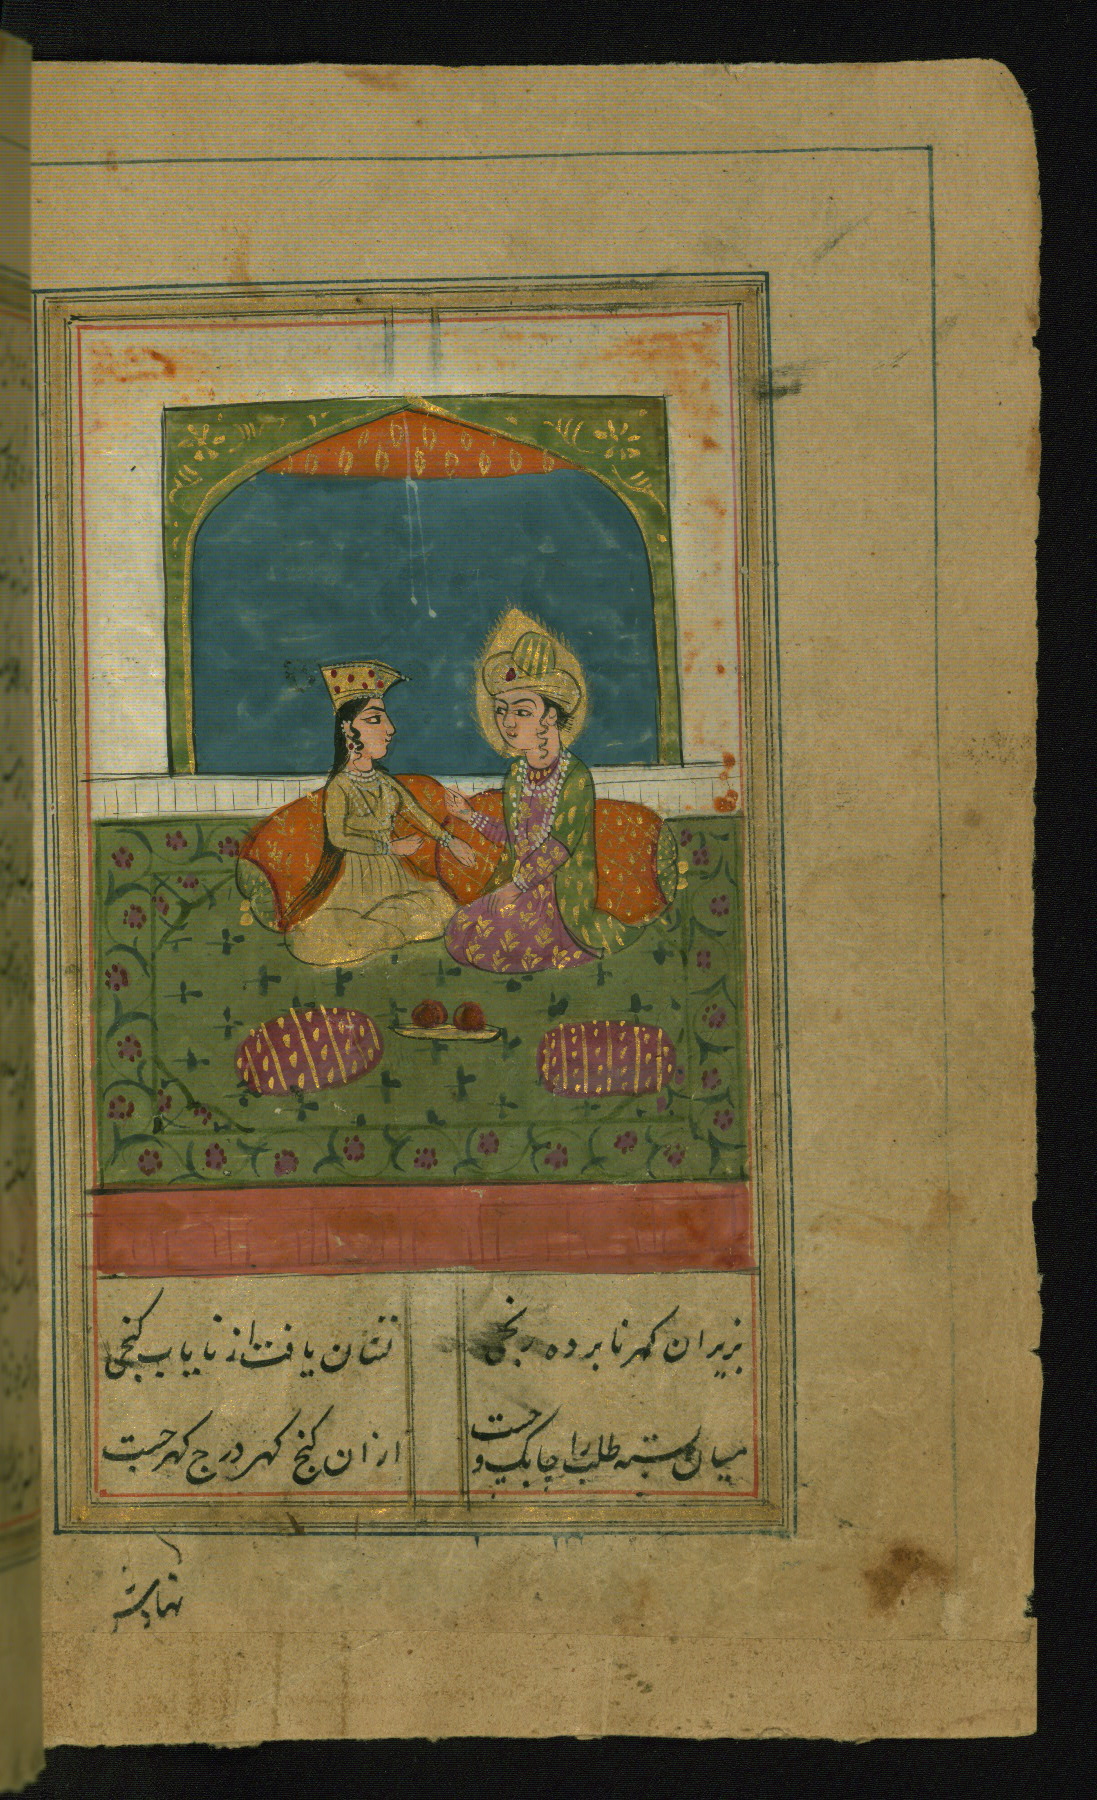 بزیر ان کهر نابرده رنجی نشان یافت از نایاب کنجی
میان بسته طلب را چابک و چست از ان کنج کهر درج کهر جست
نهادش